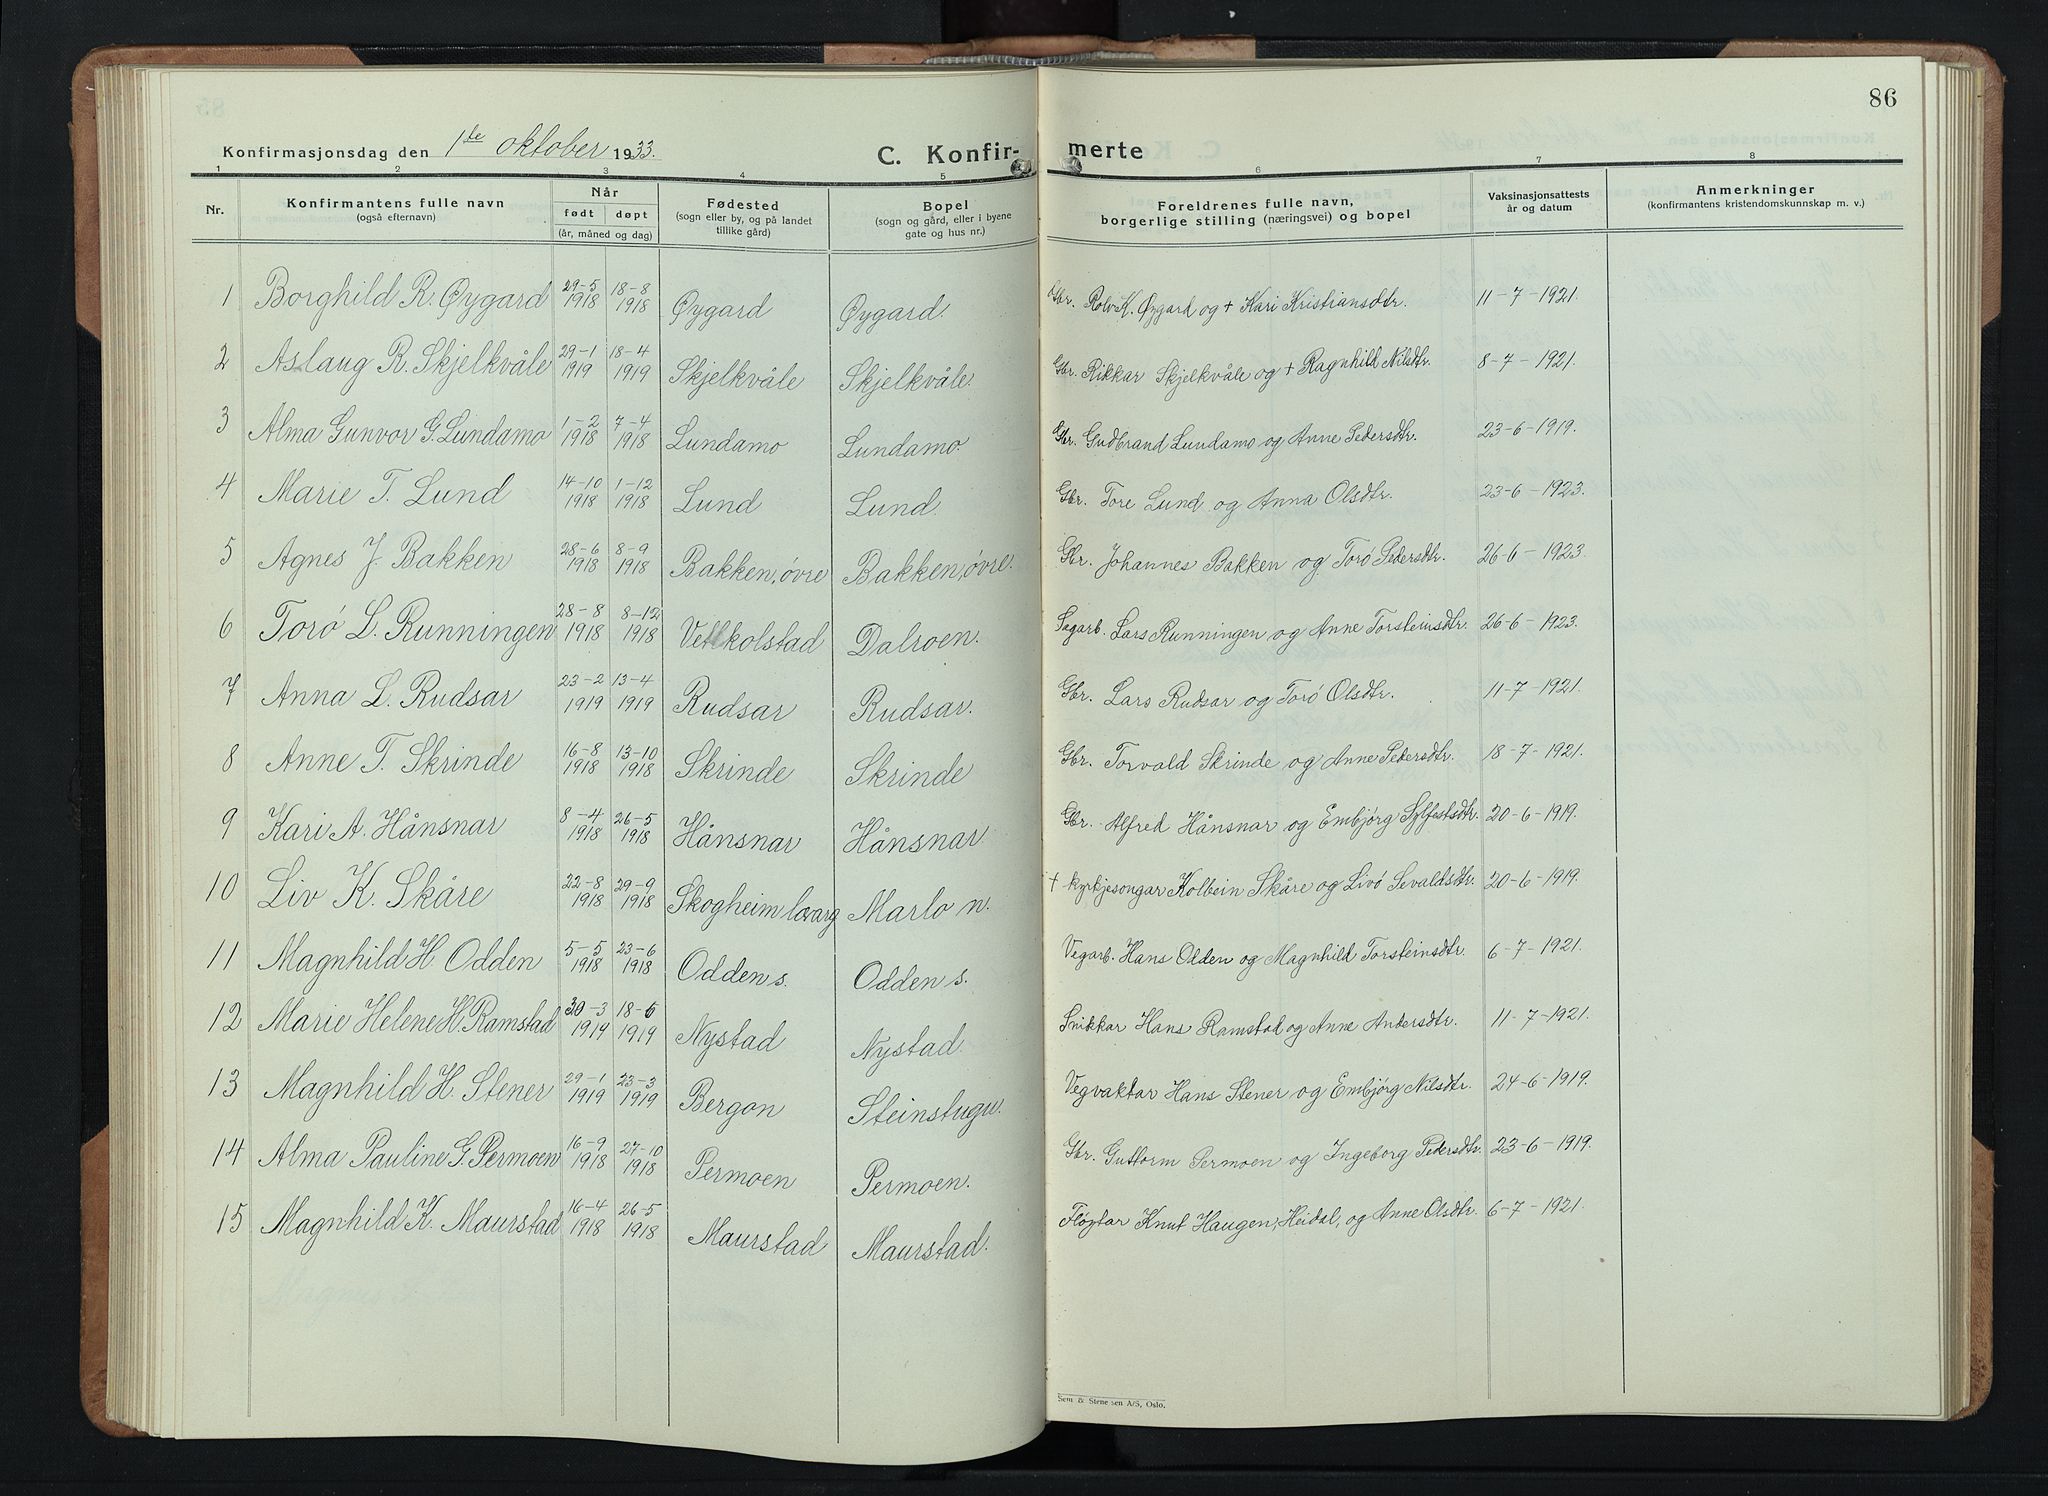 86
Konfirmasjonsdag den 1ste oktober 1933. C. Konfir- merte
1 2 3 4 5 6 7 8
Nr. Konfirmantens fulle navn (også efternavn) Når født døpt (år, måned og dag) Fødested (sogn eller by, og på landet tillike gård) Bopel (sogn og gård, eller i byene gate og hus nr.) Foreldrenes fulle navn, borgerlige stilling (næringsvei) og bopel Vaksinasjonsattests år og datum Anmerkninger (konfirmantens kristendomskunnskap m. v.)
1 Borghild R. Øygard 29-5 1918 18-8 1918 Øygard Øygard. Gbr. Rolv K. Øygard og + Kari Kristiansdtr. 11-7-1921.
2 Aslaug R. Skjelkvåle 29-1 1919 18-4 1919 Skjelkvåle Skjelkvåle. Gbr. Rikkar Skjelkvåle og + Ragnhild Nilsdtr. 8-7-1921.
3 Alma Gunvor G. Lundamo 1-2 1918 7-4 1918 Lundamo Lundamo. Gbr. Gudbrand Lundamo og Anne Pedersdtr. 23-6-1919.
4 Marie T. Lund 14-10 1918 1-12 1918 Lund Lund. Gbr. Tore Lund og Anna Olsdtr. 23-6-1923.
5 Agnes J. Bakken 28-6 1918 8-9 1918 Bakken, øvre Bakken, øvre. Gbr. Johannes Bakken og Torø Pedersdtr. 26-6-1923.
6 Torø L. Runningen 28-8 1918 8-12 1918 Vetlkolstad Dalroen. Sagarb. Lars Runningen og Anne Torsteinsdtr. 26-6-1923.
7 Anna L. Rudsar 23-2 1919 13-4 1919 Rudsar Rudsar. Gbr. Lars Rudsar og Torø Olsdtr. 11-7-1921.
8 Anne T. Skrinde 16-8 1918 13-10 1918 Skrinde Skrinde Gbr. Torvald Skrinde og Anne Pedersdtr. 18-7-1921.
9 Kari A. Hånsnar 8-4 1918 26-5 1918 Hånsnar Hånsnar. Gbr. Alfred Hånsnar og Embjørg Sylfestsdtr. 20-6-1919.
10 Liv K. Skåre 22-8 1918 29-9 1918 Skogheim Marlo n. + kyrkjesongar Kolbein Skåre og Livø Sevaldsdtr. 20-6-1919.
11 Magnhild H. Odden 5-5 1918 23-6 1918 Odden s. Odden s. Vegarb. Hans Odden og Magnhild Torsteinsdtr. 6-7-1921.
12 Marie Helene H. Ramstad 30-3 1919 18-6 1919 Nystad Nystad. Snikkar Hans Ramstad og Anne Andersdtr. 11-7-1921.
13 Magnhild H. Stener 29-1 1919 23-3 1919 Bergon Steinstugu. Vegvaktar Hans Stener og Embjørg Nilsdtr. 24-6-1919.
14 Alma Pauline G. Permoen 16-9 1918 27-10 1918 Permoen Permoen. Gbr. Guttorm Permoen og Ingeborg Pedersdtr. 23-6-1919.
15 Magnhild K. Maurstad 16-4 1918 26-5 1918 Maurstad Maurstad. Fløytar Knut Haugen, Heidal, og Anne Olsdtr. 6-7-1921.
Sem & Stenersen A/S, Oslo.